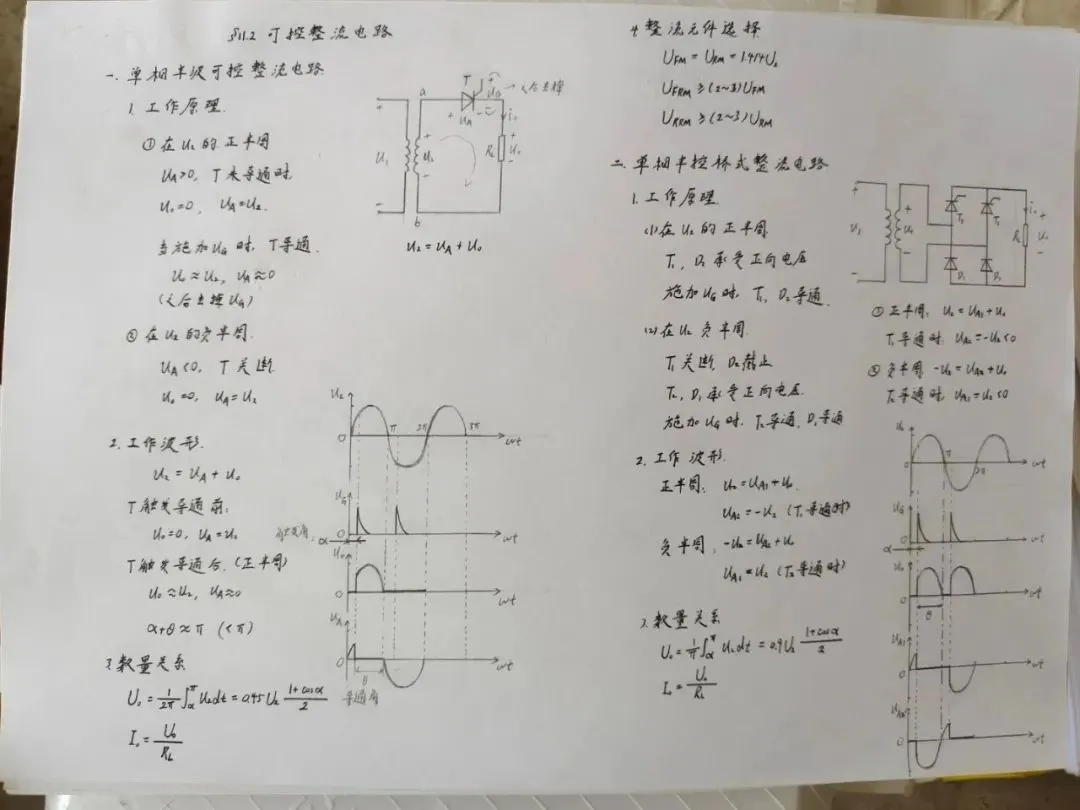 §11.2 可控整流电路
一、单相半波可控整流电路
1. 工作原理
① 在 u₂ 的正半周
u_A>0, T 未导通时
u₀=0, u_A=u₂
当施加 u_G 时, T 导通
u₀≈u₂, u_A≈0
(之后去掉 u_G)
② 在 u₂ 的负半周
u_A<0, T 关断
u₀=0, u_A=u₂
T
u_G → 之后去掉
a
+ u_A −
i₀
+
u₁
−
+
u₂
−
R_L
+
u₀
−
b
u₂=u_A+u₀
2. 工作波形
u₂=u_A+u₀
T 触发导通前:
T 触发导通后. (正半周)
u₀≈u₂, u_A≈0
α+θ≈π (<π)
u₂
0
π
2π
3π
ωt
u_G
0
ωt
触发角
α
u₀
0
ωt
u_A
0
θ
ωt
导通角
3. 数量关系
U₀=1/2π ∫_α^π u₂dt=0.45U₂ (1+cosα)/2
I₀=U₀/R_L
4. 整流元件选择
U_FM=U_RM=1.414U₂
U_FRM≥(2~3)U_FM
U_RRM≥(2~3)U_RM
二、单相半控桥式整流电路
1. 工作原理
(1) 在 u₂ 的正半周
T₁, D₂ 承受正向电压
施加 u_G 时, T₁, D₂ 导通
(2) 在 u₂ 负半周
T₁ 关断, D₂ 截止
T₂, D₁ 承受正向电压
施加 u_G 时, T₂ 导通, D₁ 导通
+
−
+
−
T₁
T₂
D₁
D₂
i₀
R_L
+
u₀
−
① 正半周: u₂=u_A₁+u₀
T₁ 导通时: u_A₂=-u₂<0
② 负半周: -u₂=u_A₂+u₀
T₂ 导通时, u_A₁=u₂<0
2. 工作波形
正半周: u₂=u_A₁+u₀
u_A₂=-u₂ (T₁ 导通时)
负半周: -u₂=u_A₂+u₀
u_A₁=u₂ (T₂ 导通时)
0
π
2π
ωt
u_G
0
ωt
α
u₀
0
θ
ωt
u_A₁
0
ωt
u_A₂
0
ωt
3. 数量关系
U₀=1/π ∫_α^π u₂dt=0.9U₂ (1+cosα)/2
I₀=U₀/R_L